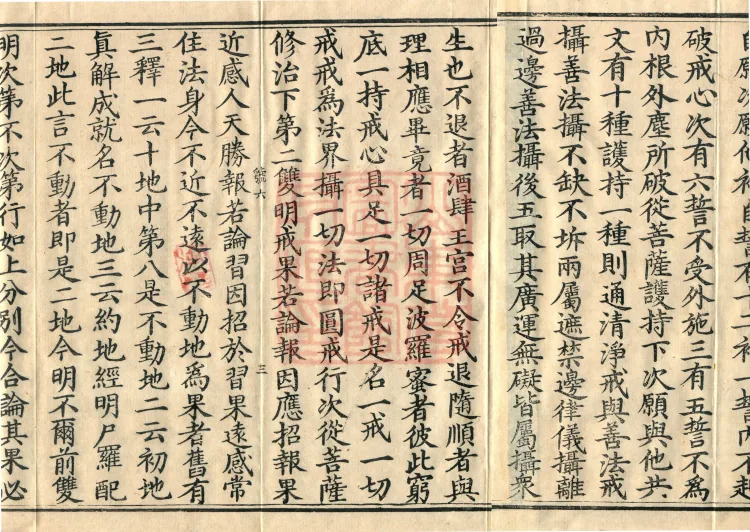 破戒心次有六誓不受外施三有五誓不為
內根外塵所破從菩薩護持下次願與他共
文有十種護持一種則通清淨戒與善法戒
攝善法攝不缺不坼兩屬遮禁邊律儀攝離
過邊善法攝後五取其廣運無礙皆屬攝衆
生也不退者酒肆王宮不令戒退隨順者與
理相應畢竟者一切周足波羅蜜者彼此窮
底一持戒心具足一切諸戒是名一戒一切
戒戒爲法界攝一切法即圓戒行次從菩薩
修治下第二雙明戒果若論報因應招報果
六
三
近感人天勝報若論習因招於習果遠感常
住法身今不近不遠以不動地爲果者舊有
三釋一云十地中第八是不動地二云初地
眞解成就名不動地三云約地經明尸羅配
二地此言不動者即是二地今明不爾前雙
明次第不次第行如上分別今合論其果必